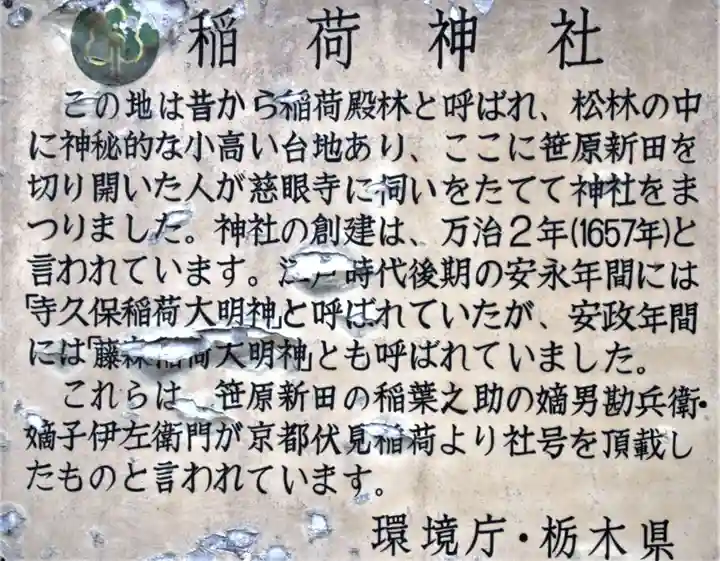 稲荷神社
この地は昔から稲荷殿林と呼ばれ、松林の中
に神秘的な小高い台地あり、ここに笹原新田を
切り開いた人が慈眼寺に伺いをたてて神社をま
つりました。神社の創建は、万治2年(1657年)と
言われています。江戸時代後期の安永年間には
「寺久保稲荷大明神」と呼ばれていたが、安政年間
には「藤森稲荷大明神」とも呼ばれていました。
これらは、笹原新田の稲葉之助の嫡男勘兵衛・
嫡子伊左衛門が京都伏見稲荷より社号を頂載し
たものと言われています。
環境庁・栃木県